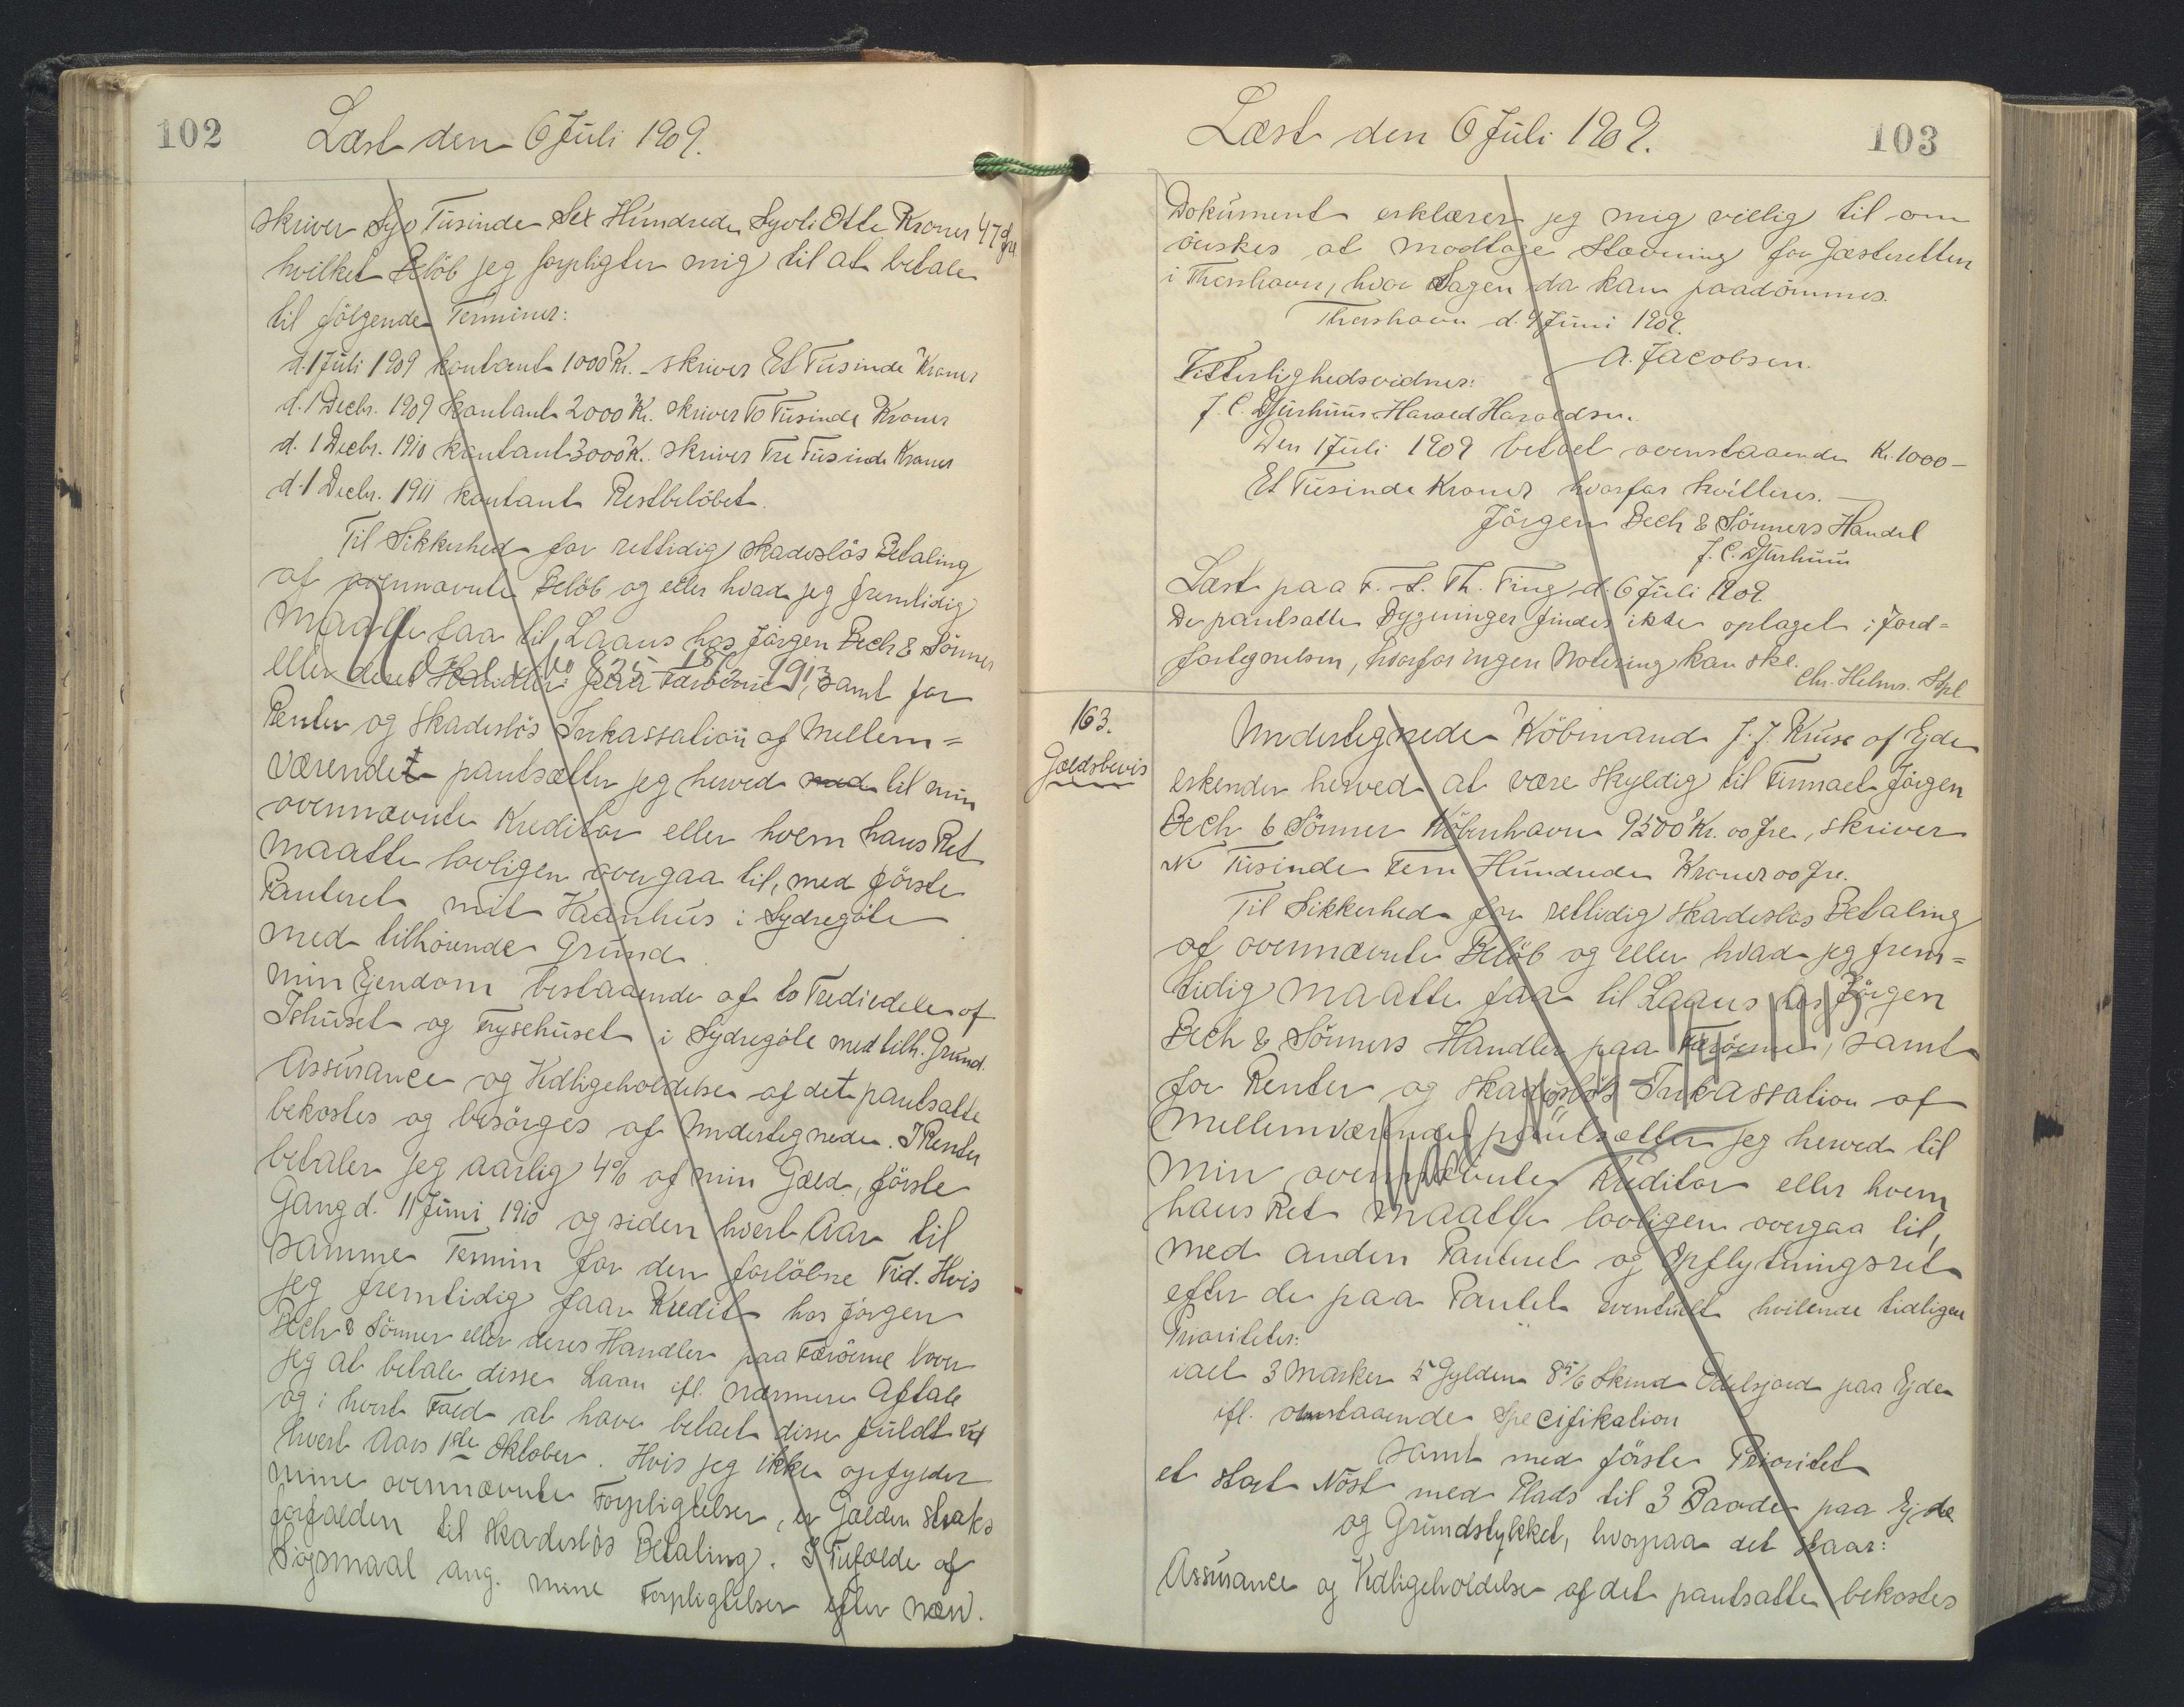 102
Læst den 6 Juli 1909.
skriver Syv Tusinde Sex Hundrede Syvti Otte Kroner 47 Øre
hvilket Beløb jeg forpligter mig til at betale
til følgende Terminer:
d. 1 Juli 1909 kontant 1000 Kr. - skriver Et Tusinde Kroner
d. 1 Decbr. 1909 kontant 2000 Kr. skriver To Tusinde Kroner
d. 1 Decbr. 1910 kontant 3000 K. skriver Tre Tusinde Kroner
d. 1 Decbr. 1911 kontant Restbeløbet.
Til Sikkerhed for rettidig skadesløs Betaling
af ovennævnte Beløb og eller hvad jeg fremtidig
maatte faa til Laans hos Jörgen Bech & Sønner
eller deres Handler paa Færøerne, samt for
825 18/12 1913
Renter og skadesløs Inkassation af Mellem=
værendet pantsætter jeg herved med til min
ovennævnte Kreditor eller hvem hans Ret
maatte lovligen overgaa til, med første
Panteret mit Vaanhus i Sydregøte
med tilhørende Grund.
min Ejendom bestaaende af to Trediedele af
Ishuset og Frysehuset i Sydregøte med tilh. Grund.
Assurance og Vedligeholdelse af det pantsatte
bekostes og besørges af Undertegnede. I Renter
betaler jeg aarlig 4% af min Gæld, første
Gang d. 11 Juni 1910 og siden hvert Aar til
samme Termin for den forløbne Tid. Hvis
jeg fremtidig faar Kredit hos Jörgen
Bech & Sønner eller deres Handler paa Færøerne lover
jeg at betale disse Laan ifl. nærmere Aftale
og i hvert Fald at have betalt disse fuldt ud
hvert Aars 1ste Oktober. Hvis jeg ikke opfylder
mine ovennævnte Forpligtelser, er Gælden straks
forfalden til skadesløs Betaling. I Tilfælde af
Søgsmaal ang. mine Forpligtelser efter nærv.
Læst den 6 Juli 1909.
103
Dokument erklærer jeg mig villig til om
ønskes at modtage Stævning for Gæsteretten
i Thorshavn, hvor Sagen da kan paadømmes.
Thorshavn d. 9 Juni 1909.
A. Jacobsen.
Vitterlighedsvidner:
J. C. Djurhuus Harald Haraldsen.
Den 1 Juli 1909 betalt ovenstaaende Kr. 1000 -
Et Tusinde Kroner hvorfor kvitteres. -
Jörgen Bech & Sønners Handel
J. C. Djurhuus
Læst paa F. S. Th. Ting d. 6 Juli 1909.
De pantsatte Bygninger findes ikke optaget i Jord=
fortegnelsen, hvorfor ingen Notering kan ske.
Chr. Helms. Stpl
163.
Gældsbevis
Undertegnede Købmand J. J. Kruse af Ejde
erkender herved at være skyldig til Firmaet Jörgen
Bech & Sønner København 9500 Kr. 00 Øre, skriver
Ni Tusinde Fem Hundrede Kroner 00 Øre.
Til Sikkerhed for rettidig skadesløs Betaling
af ovennævnte Beløb og eller hvad jeg frem=
tidig maatte faa til Laans hos Jörgen
Bech & Sønners Handler paa Færøerne, samt
for Renter og skadesløs Inkassation af
Mellemværendet pantsætter jeg herved til
min ovennævnte Kreditor eller hvem
hans Ret maatte lovligen overgaa til,
med anden Panteret og Opflytningsret
efter de paa Pantet eventuelt hvilende tidligere
Prioriteter:
ialt 3 Marker 5 Gylden 8 5/6 Skind Odelsjord paa Ejde
ifl. omstaaende Specifikation
samt med første Prioritet
et stort Nøst med Plads til 3 Baade paa Ejde
og Grundstykket, hvorpaa det staar:
Assurance og Vedligeholdelse af det pantsatte bekostes